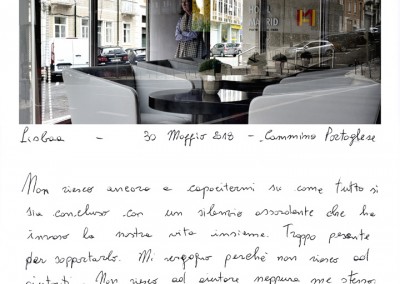 MADRID
Lisboa - 30 Maggio 2018 - Cammino Portoghese
Non riesco ancora a capacitarmi su come tutto si
sia concluso con un silenzio assordante che ha
invaso la nostra vita insieme. Troppo pesante
per sopportarlo. Mi vergogno perché non riesco ad
aiutarti. Non riesco ad aiutare neppure me stesso